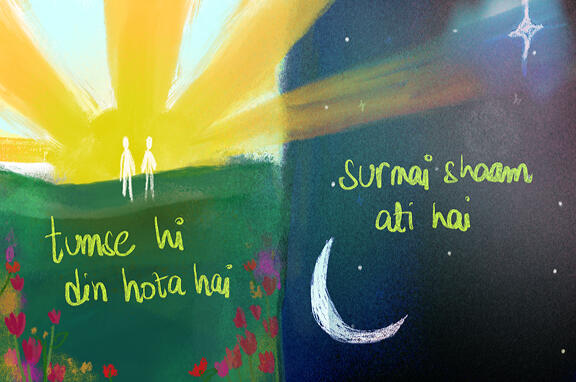 tumse hi
din hota hai
surmai shaam
ati hai